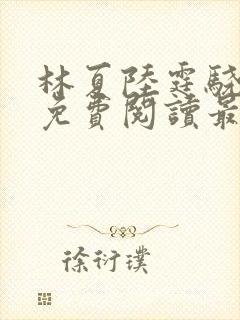 林夏陸霆驍
免費閱讀最
徐衍璞